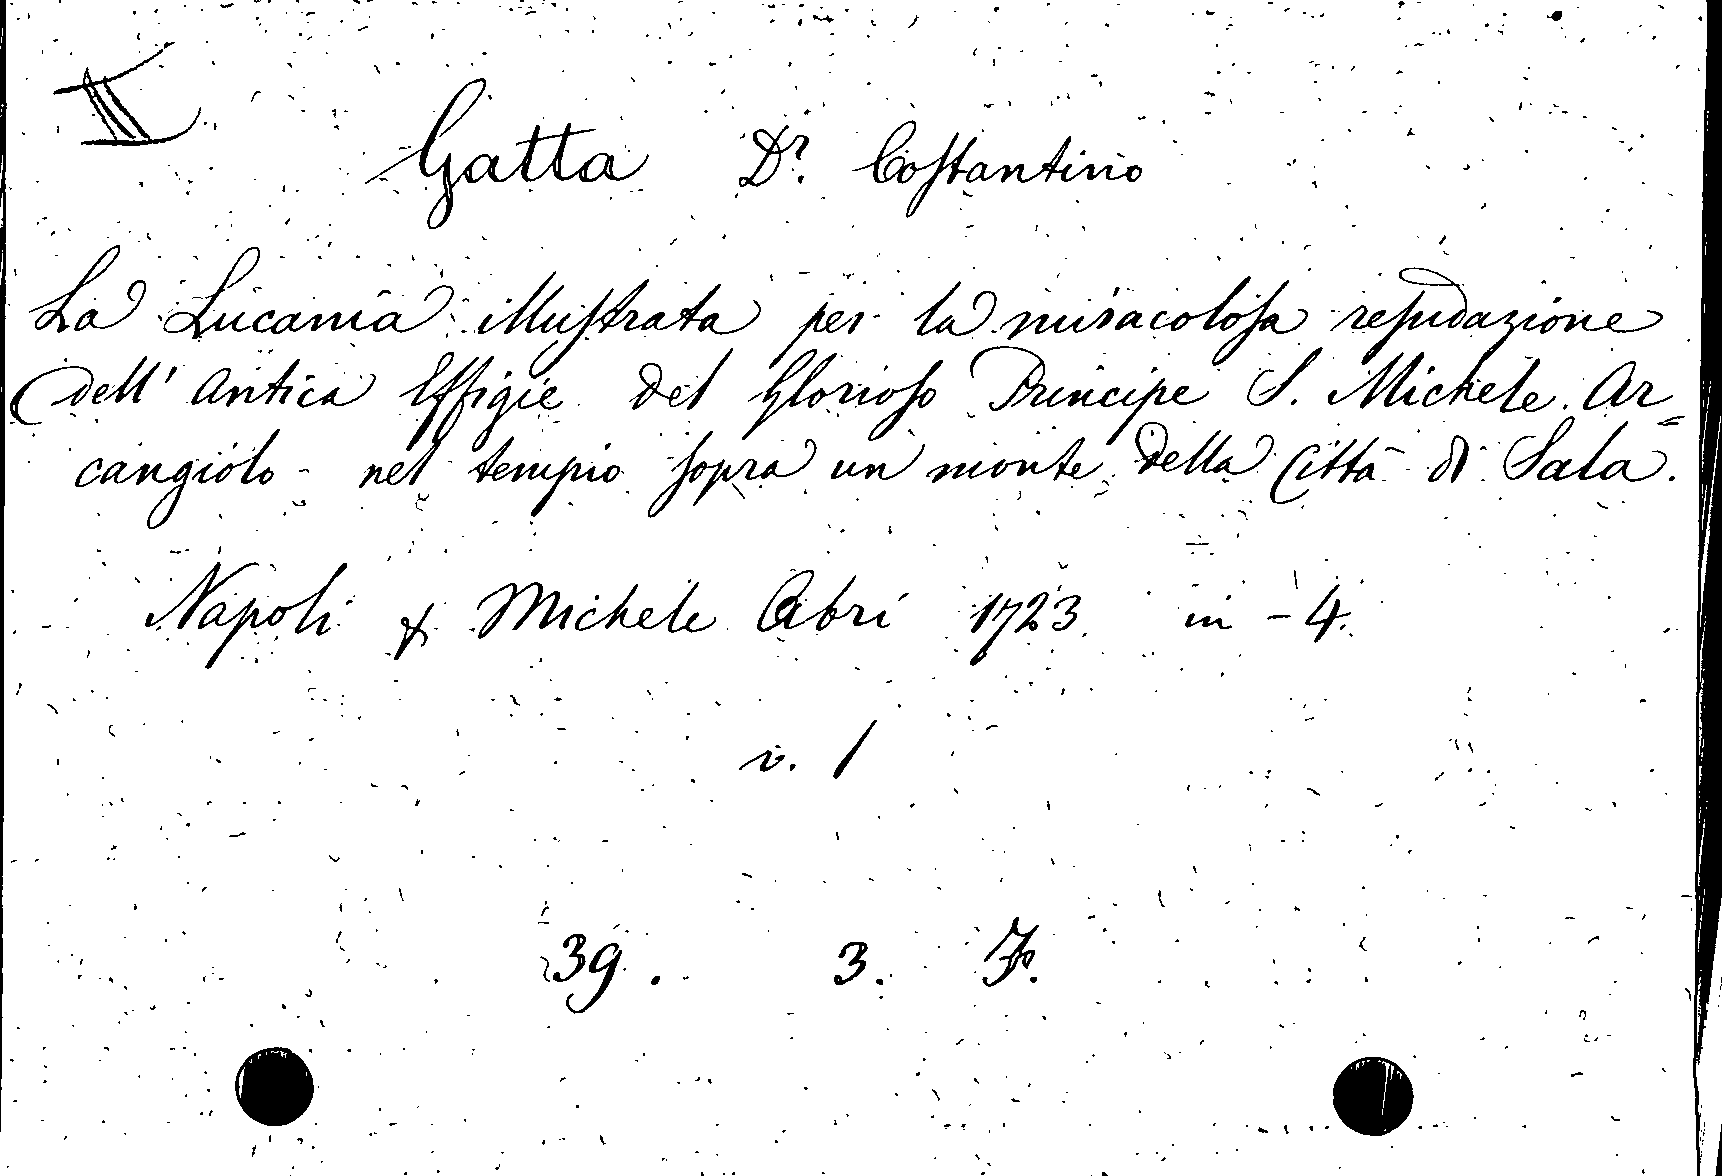 Gatta Dr. Costantino
La Lucania illustrata per la miracolosa resudazione
dell' Antica Effigie del Glorioso Principe S. Michele Ar=
cangiolo nel tempio sopra un monte della Città di Sala.
Napoli Michele Abri 1723 in-4.
v. 1
39. 3.